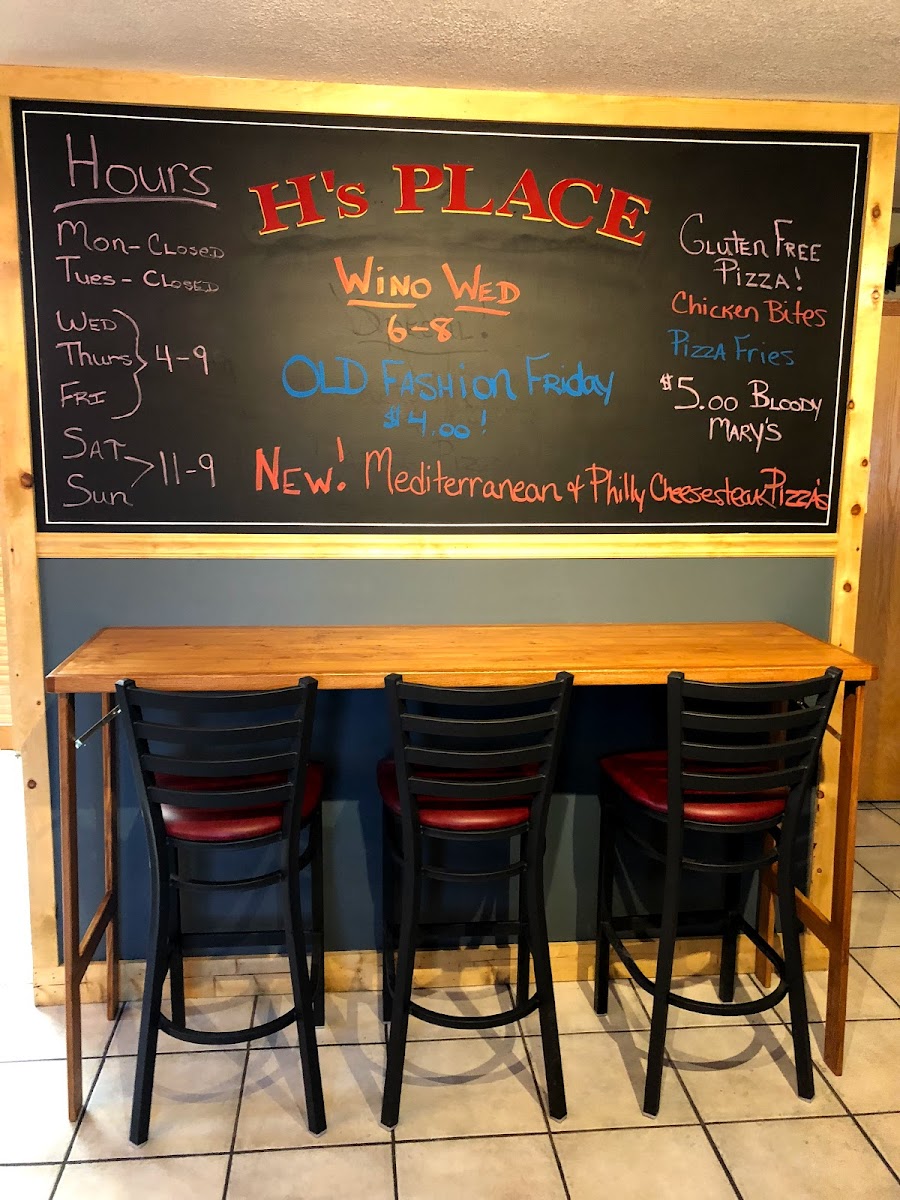 H's PLACE
Hours
Mon - Closed
Tues - Closed
Wed
Thurs
Fri
4-9
Sat
Sun
11-9
Wino Wed
6-8
Old Fashion Friday
$4.00!
New! Mediterranean & Philly Cheesesteak Pizza's
Gluten Free
Pizza!
Chicken Bites
Pizza Fries
$5.00 Bloody
Mary's